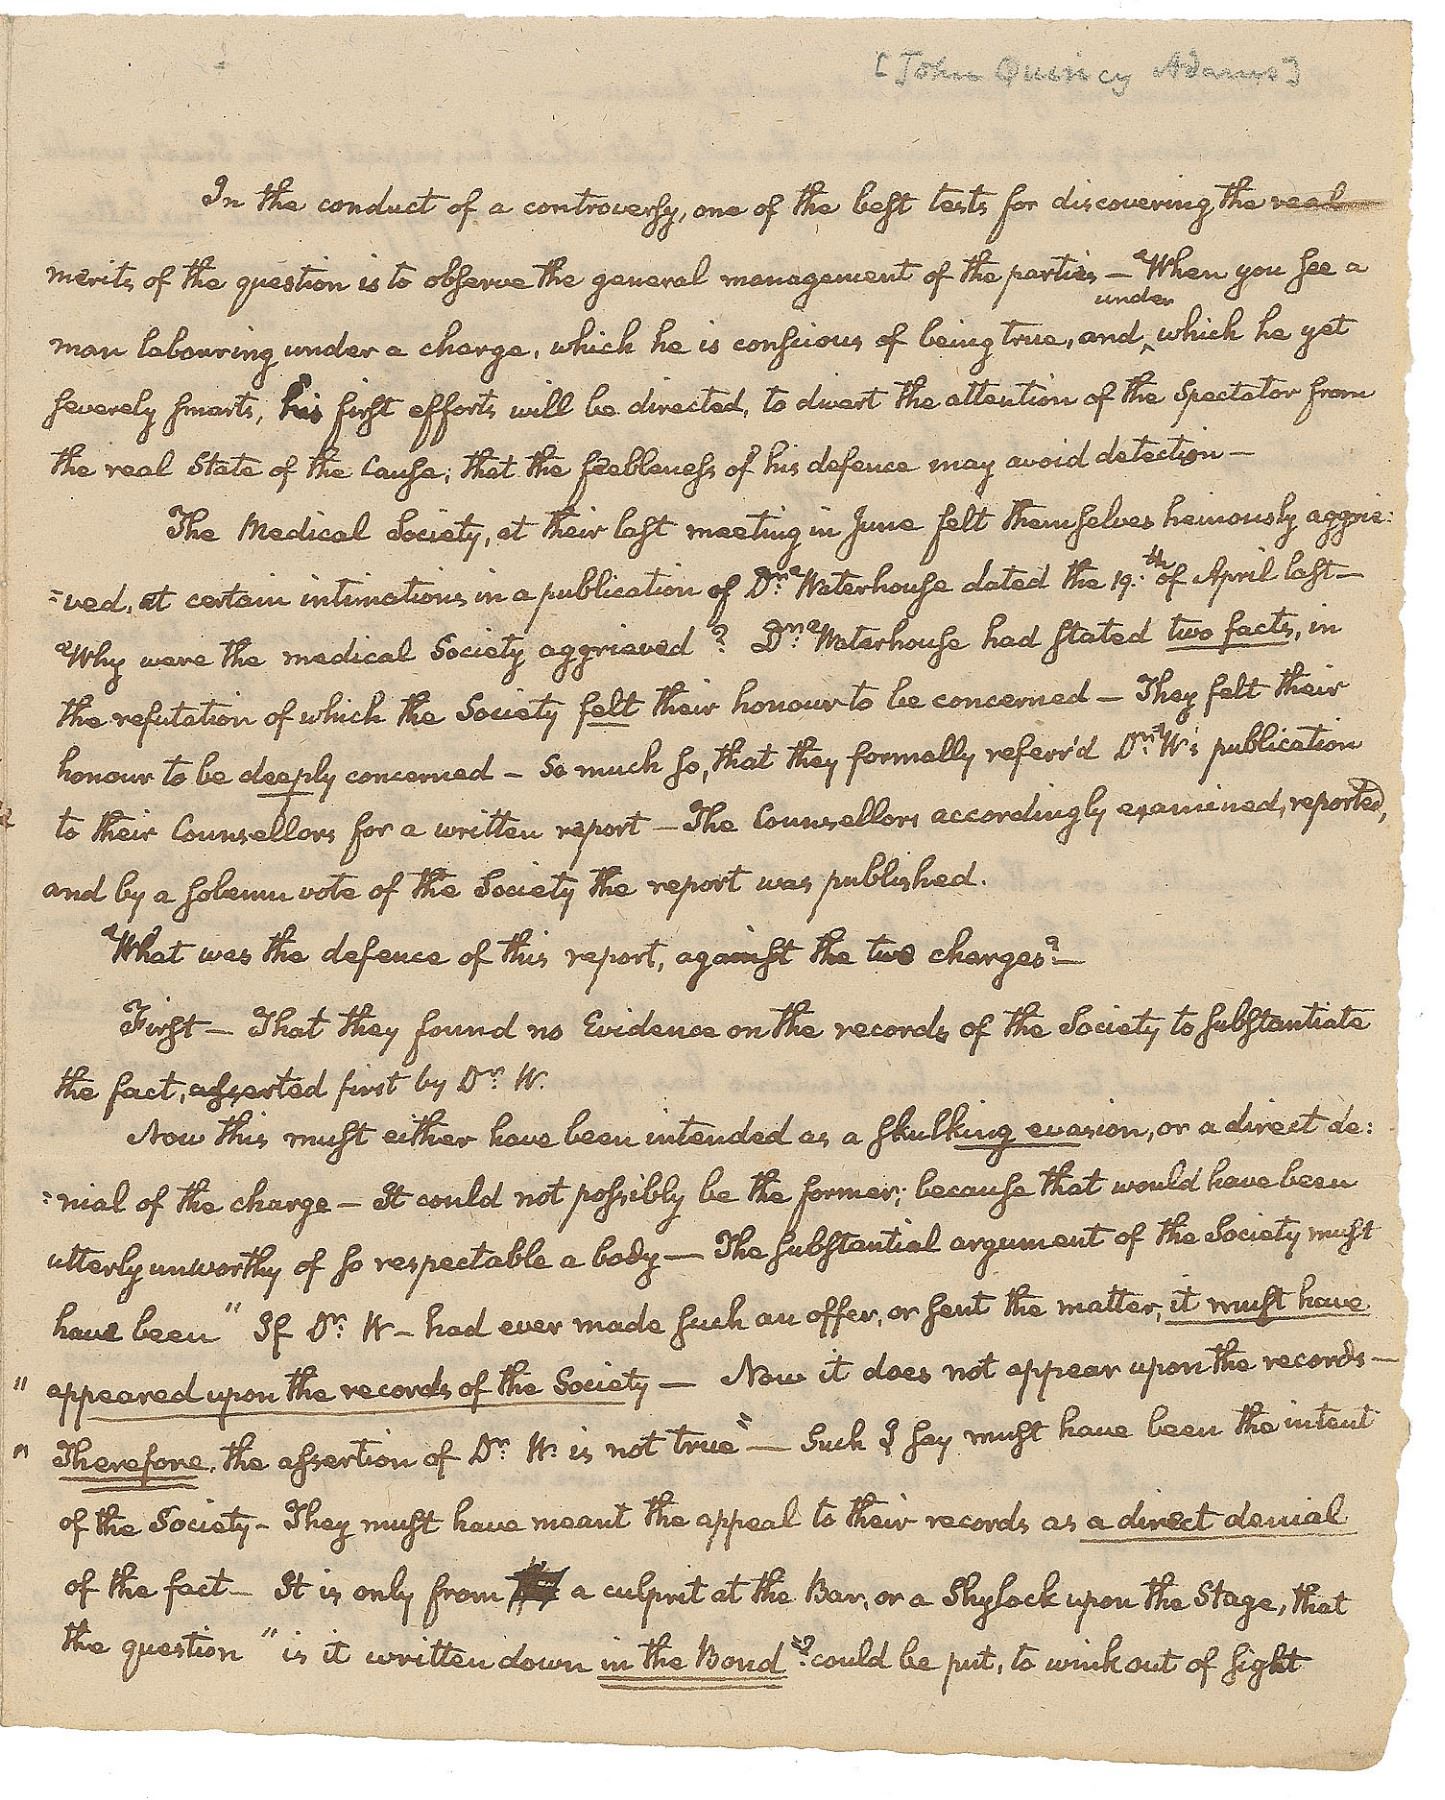 [John Quincy Adams]
In the conduct of a controversy, one of the best tests for discovering the real
merits of the question is to observe the general management of the parties — When you see a
under
man labouring under a charge, which he is conscious of being true, and ^ which he yet
severely smarts, his first efforts will be directed, to divert the attention of the Spectator from
the real State of the Cause; that the feebleness of his defence may avoid detection —
The Medical Society, at their last meeting in June felt themselves heinously aggrie:
=ved, at certain intimations in a publication of Dr. Waterhouse dated the 19.th of April last —
Why were the medical Society aggrieved? Dr. Waterhouse had stated two facts, in
the refutation of which the Society felt their honour to be concerned — They felt their
honour to be deeply concerned — So much so, that they formally referr'd Dr. W's publication
to their Counsellors for a written report — The Counsellors accordingly examined, reported,
and by a solemn vote of the Society the report was published.
What was the defence of this report, against the two charges? —
First — That they found no Evidence on the records of the Society to substantiate
the fact, asserted first by Dr. W.
Now this must either have been intended as a skulking evasion, or a direct de:
:nial of the charge — It could not possibly be the former; because that would have been
utterly unworthy of so respectable a body — The substantial argument of the Society must
have been " If Dr. W — had ever made such an offer, or sent the matter, it must have
" appeared upon the records of the Society — Now it does not appear upon the records —
" Therefore, the assertion of Dr. W. is not true" — Such I say must have been the intent
of the Society — They must have meant the appeal to their records as a direct denial
of the fact — It is only from a culprit at the Bar, or a Shylock upon the Stage, that
the question "is it written down in the Bond"? could be put, to wink out of sight